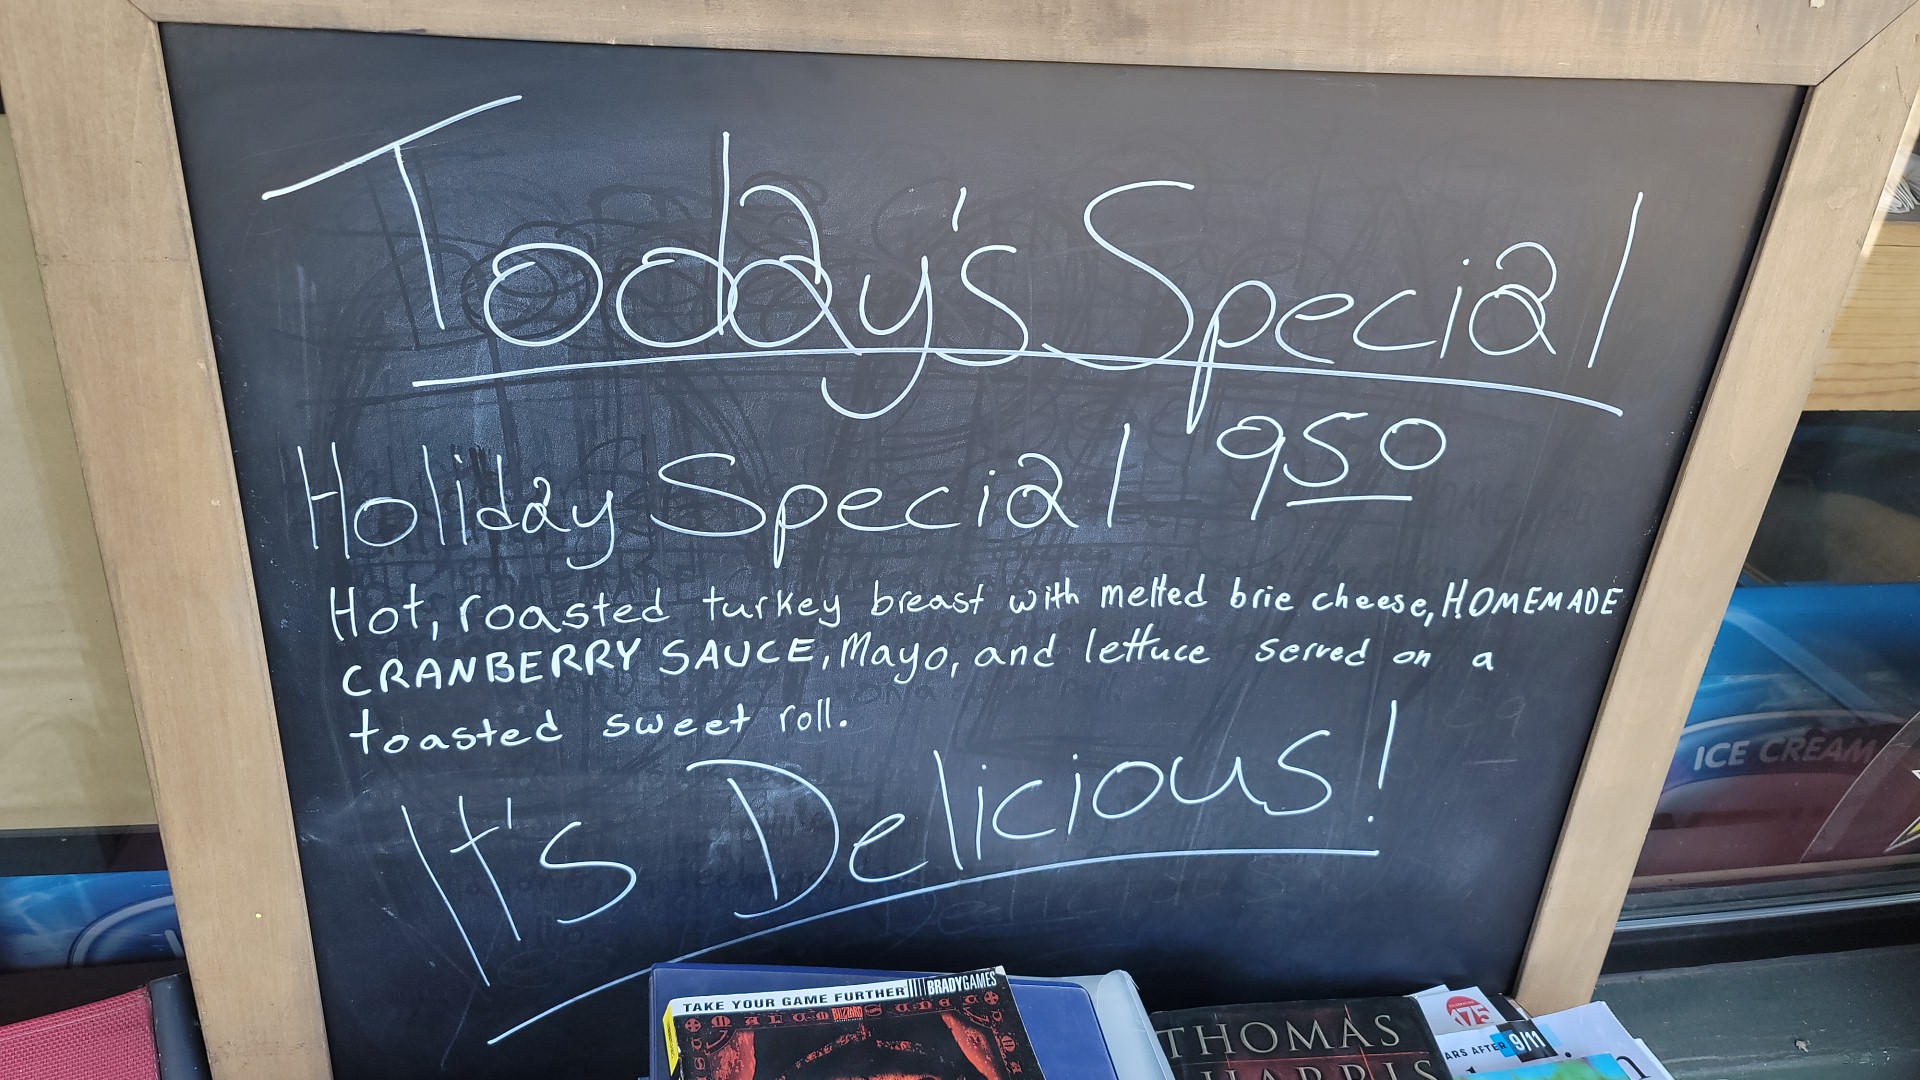 Today's Special
Holiday Special 950
Hot, roasted turkey breast with melted brie cheese, HOMEMADE
CRANBERRY SAUCE, Mayo, and lettuce served on a
toasted sweet roll.
It's Delicious!
ICE CREAM
TAKE YOUR GAME FURTHER BRADYGAMES
BLIZZARD
THOMAS
HARRIS
75
ARS AFTER 9/11